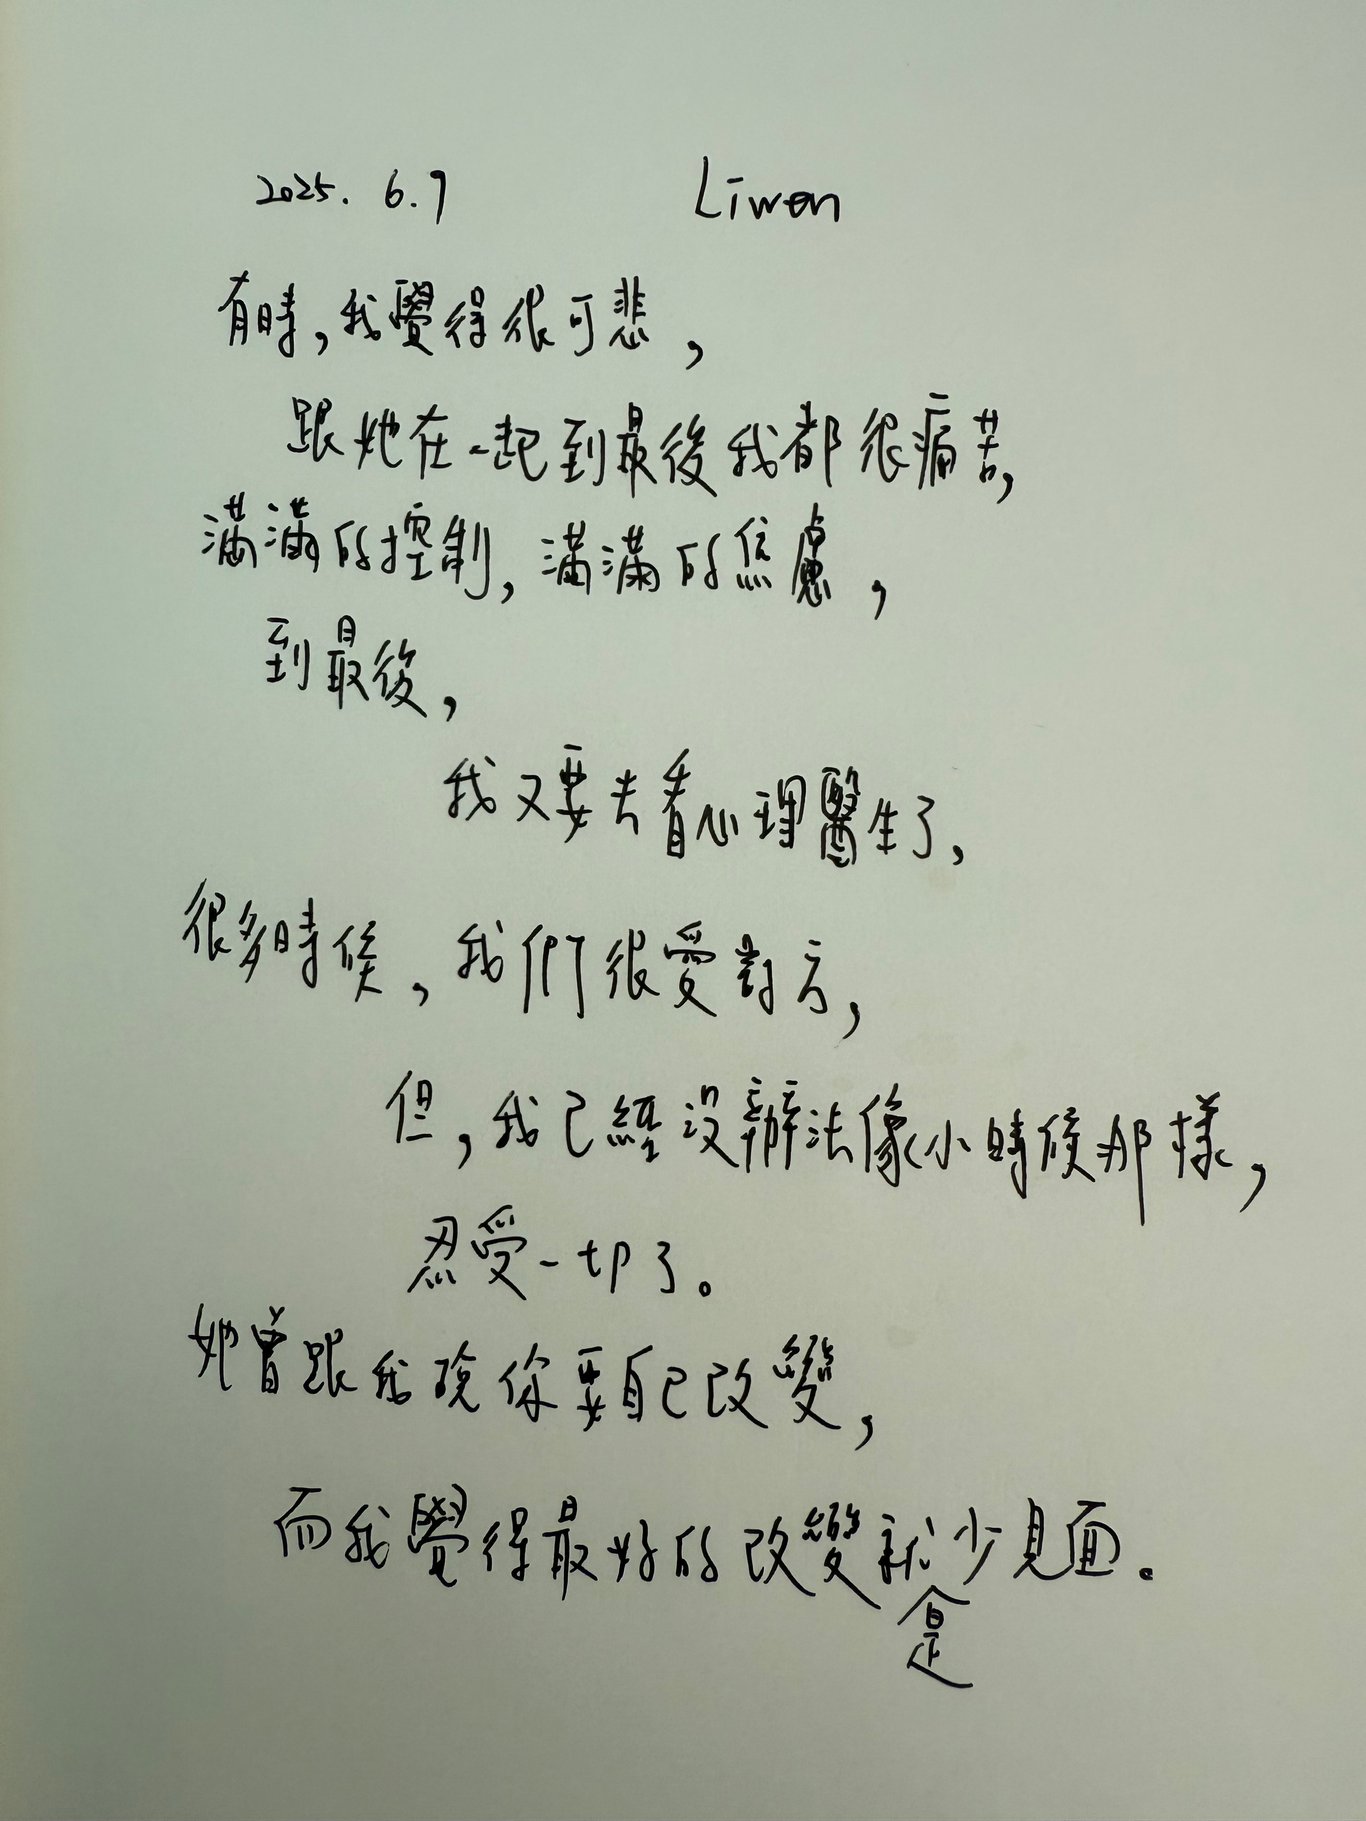 2025. 6.7 Liwen
有時，我覺得很可悲，
跟她在一起到最後我都很痛苦，
滿滿的控制，滿滿的焦慮，
到最後，
我又要去看心理醫生了，
很多時候，我們很愛對方，
但，我已經沒辦法像小時候那樣，
忍受一切了。
她曾跟我說你要自己改變，
而我覺得最好的改變就是少見面。